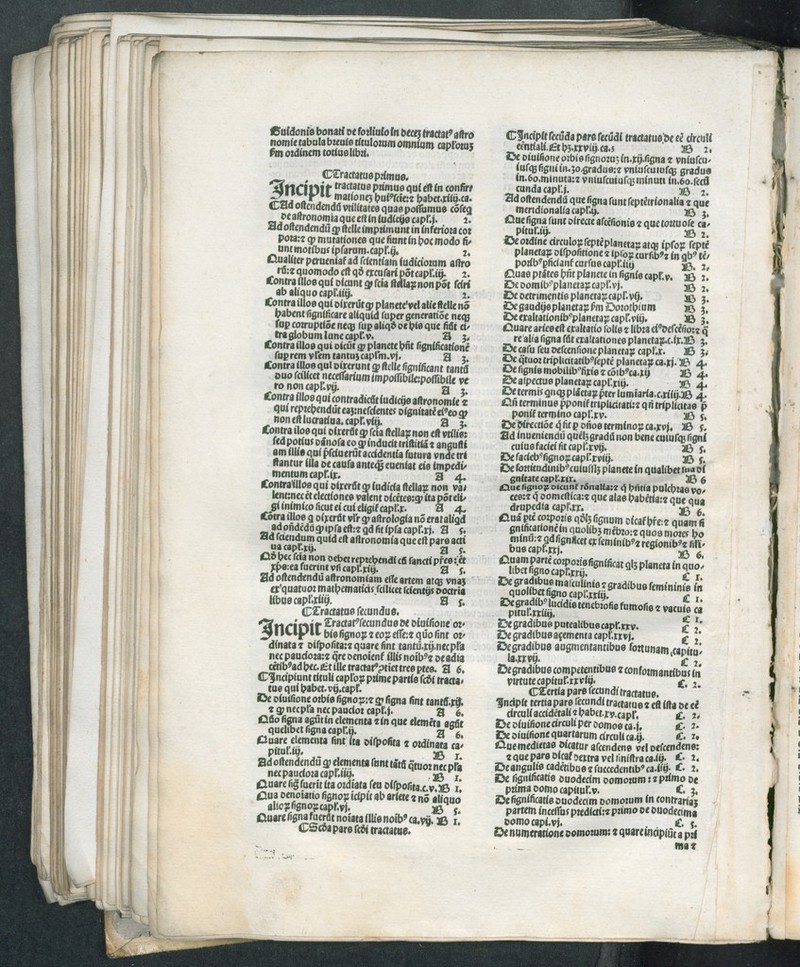 Guidonis bonati de forliuio in decez tractatꝰ astro
nomie tabula breuis titulorum omnium capl'orum
fm ordinem totius libri.
⸿Tractatus primus.
Incipit tractatus primus qui est in confir⸗
mationez huiꝰ sciẽ: ⁊ habet.xiiij.ca.
⸿Ad ostendendũ vtilitates quas possumus cõseq̃
de astronomia que est in iudicijs cap̃l.j. 2.
Ad ostendendũ ꝙ stelle imprimunt in inferiora cor
pora: ⁊ ꝙ mutationes que fiunt in hoc modo fi⸗
unt motibus ipsarum.cap̃l.ij. 2.
Qualiter perueniat̃ ad scientiam iudiciorum astro
rũ: ⁊ quomodo est qđ excusari põt cap̃l.iij. 2.
Contra illos qui dicunt ꝙ scĩa stellaꝝ non põt sciri
ab aliquo cap̃l.iiij. 2.
Contra illos qui dixerũt ꝙ planete ̃vel alie stelle nõ
habent significare aliquid super generatiõe neqꝫ
sup corruptiõe neqꝫ sup aliqđ de his que fiũt ci⸗
tra globum lune cap̃l.v. A 3.
Contra illos qui dicũt ꝙ planete hñt significationẽ
sup rem vl̃em tantuꝫ cap̃lm.vj. A 3.
Contra illos qui dixerunt ꝙ stelle significant tantũ
duo scilicet necessarium impossibile: possibile ve
ro non cap̃l.vij. A 3.
Contra illos qui contradicũt iudicijs astronomie ⁊
qui reprehendũt eaꝫ: nescientes dignitatẽ eiꝰ eo ꝙ
non est lucratiua. cap̃l.viij. A 3.
Contra illos qui dixerũt ꝙ scĩa stellaꝝ non est vtilis:
sed potius dãnosa eo ꝙ inducit tristitiã ⁊ angusti
am illis qui ꝑsciuerũt accidentia futura vnde tri
stantur illa de causa anteꝗ̃ eueniat eis impedi⸗
mentum cap̃l.ix. A 4.
Contra illos qui dixerũt ꝙ iudicia stellaꝝ non va⸗
lent: nec ẽt electiones valent dicẽtes: ꝙ ita põt eli⸗
gi inimico sicut ei cui eligit̃ cap̃l.x. A 4.
Cõtra illos q̃ dixerũt vl̃r ꝙ astrologia nõ erat aliqđ
ad oñdẽdũ ꝙ ipsa est: ⁊ qđ sit ipsa cap̃l.xj. A 5.
Ad sciendum quid est astronomia que est pars acti
ua cap̃l.xij. A 5.
Qđ hec scĩa non debet reprehendi cũ sancti pr̃es: ⁊ ẽt
xp̃s: ea fuerint vsi cap̃l.xiij. A 5.
Ad ostendendũ astronomiam esse artem atqꝫ vnaꝫ
ex quatuor mathematicis scilicet scientijs doctrina
libus cap̃l.xiiij. A 5.
⸿Tractatus secundus.
Incipit Tractatꝰ secundus de diuisione or⸗
bis signoꝝ ⁊ eoꝝ esse: ⁊ quõ sint or⸗
dinata ⁊ disposita: ⁊ quare sint tantũ.xij.nec pl̃a
nec pauciora: ⁊ q̃re denoĩent̃ illis noĩbꝰ ⁊ de adia
cẽtibꝰ ad hec. Et ille tractatꝰ ꝯtinet tres ptes. A 6.
⸿Incipiunt tituli cap̃loꝝ prime partis scđi tracta⸗
tus qui habet.vij.cap̃l.
De diuisione orbis signoꝝ: ⁊ ꝙ signa sint tantũ.xij.
⁊ ꝙ nec pl̃a nec paucior cap̃l.j. A 6.
Quõ signa agũt in elementa ⁊ in que elemẽta agũt
quelibet signa cap̃l.ij. A 6.
Quare elementa sint ita disposita ⁊ ordinata ca⸗
pitul̃.iij. B 1.
Ad ostendendũ ꝙ elementa sunt tãtũ q̃tuor nec pl̃a
nec pauciora cap̃l.iiij. B 1.
Quare sig̃ fuerĩt ita ordinata seu disposita.c.v. B 1.
Qua denoĩatio signoꝝ ĩcipit ab ariete ⁊ nõ aliquo
alioꝝ signoꝝ cap̃l.vj. B 5.
Quare signa fuerũt noĩata illis noĩbꝰ ca.vij. B 1.
⸿Scđa pars scđi tractatus.
⸿Incipit secũda pars secũdi tractatus de eẽ circuli
eẽntiali. Et hꝫ.xxviij.ca.s B 2.
De diuisione orbis signoruꝫ in.xij.signa ⁊ vniuscu⸗
iusqꝫ signi in.30.gradus: ⁊ vniuscuiusqꝫ gradus
in.60.minuta: ⁊ vniuscuiusqꝫ minuti in.60.secũ
cunda cap̃l.j. B 2.
Ad ostendendũ que signa sunt septẽtrionalia ⁊ que
meridionalia cap̃l.ij. B 3.
Que signa sunt directe ascẽsionis ⁊ que tortuose ca⸗
pitul̃.iij. B 2.
De ordine circuloꝝ septẽ planetaꝝ atqꝫ ipsoꝝ septẽ
planetaꝝ dispositione ⁊ ipsoꝝ cursibꝰ ⁊ in qbꝰ tẽ⸗
poribꝰ ꝑficiant̃ cursus cap̃l.iiij B. 2.
Quas ptãtes hñt planete in signis cap̃l.v. B 2.
De domibꝰ planetaꝝ cap̃l.vj. B 2.
De detrimentis planetaꝝ cap̃l.vij. B 3.
De gaudijs planetaꝝ fm Dorothium B 3.
De exaltationibꝰ planetaꝝ cap̃l.viij. B 3.
Quare aries est exaltatio solis ⁊ libra eiꝰ descẽsio: ⁊ q̃
re alia signa sũt exaltationes planetaꝝ.c.ix. B 3.
De casu seu descensione planetaꝝ cap̃l.x. B 3.
De q̃tuor triplicitatibꝰ septẽ planetaꝝ ca.xj. B 4.
De signis mobilibꝰ fixis ⁊ cõibꝰ ca.xij B 4.
De aspectus planetaꝝ cap̃l.xiij. B 4.
De termis qnqꝫ plãetaꝝ p̃ter lumiaria.c.xiiij. B 4.
Qñ terminus p̃ponit̃ triplicitati: ⁊ qñ triplicitas p̃
ponit̃ termino cap̃l.xv. B 5.
De directiõe q̃ fit p dños terminoꝝ ca.xvj. B 5.
Ad inueniendũ quelꝫ gradũ non bene cuiusqꝫ signi
cuius faciei sit cap̃l.xvij. B 5.
De faciebꝰ signoꝝ cap̃l.xviij. B 5.
De fortitudinibꝰ cuiuslꝫ planete in qualibet sua di
gnitate cap̃l.xix. B 6
Que signoꝝ dicunt̃ rõnalia: ⁊ q̃ hñtia pulchras vo⸗
ces: ⁊ q̃ domestica: ⁊ que alas habẽtia: ⁊ que qua
drupedia cap̃l.xx. B 6.
Quã ptẽ corporis qđlꝫ signum dicat̃ hr̃e: ⁊ quam si
gnificationẽ in quolibꝫ mẽbro: ⁊ quos mores ho
minũ: ⁊ qđ significet ex seminibꝰ ⁊ regionibꝰ ⁊ sil̃i⸗
bus cap̃l.xxj. B 6.
Quam partẽ corporis significat qlꝫ planeta in quo⸗
libet signo cap̃l.xxij. C 1.
De gradibus masculinis ⁊ gradibus femininis in
quolibet signo cap̃l.xxiij. C 1.
De gradibꝰ lucidis tenebrosis fumosis ⁊ vacuis ca
pitul̃.xxiiij. C 1.
De gradibus putealibus cap̃l.xxv. C 2.
De gradibus açemena cap̃l.xxvj. C 2.
De gradibus augmentantibus fortunam capitu⸗
la.xxvij. C 2.
De gradibus competentibus ⁊ conformantibus in
virtute capitul̃.xxviij. C. 2.
⸿Tertia pars secundi tractatus.
Incipit tertia pars secundi tractatus ⁊ est ista de eẽ
circuli accidẽtali ⁊ habet.xv.cap̃l. C. 2.
De diuisione circuli per domos ca.j. C. 2.
De diuisione quartarum circuli ca.ij. C. 2.
Que medietas dicatur ascendens vel descendens:
⁊ que pars dicat̃ dextra vel sinistra ca.iij. C. 2.
De angulis cadẽtibus ⁊ succedentibꝰ ca.iiij. C. 2.
De significatis duodecim domorum: ⁊ primo de
prima domo capitul̃.v. C. 3.
De significatis duodecim domorum in contrariaꝫ
partem incessus predicti: ⁊ primo de duodecima
domo capi.vj. C. 5.
De numeratione domorum: ⁊ quare incipiũt a pri
ma ⁊